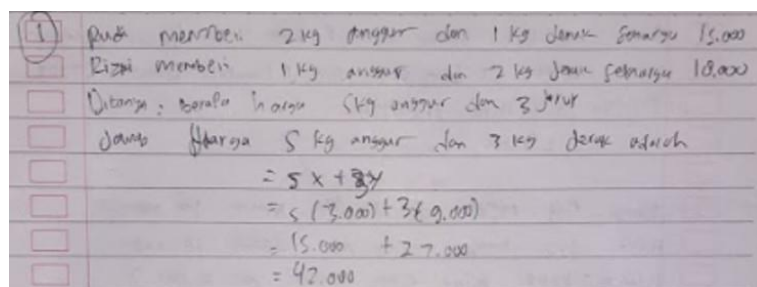 1 Rudi membeli 2 kg anggur dan 1 kg jeruk seharga 15.000
Rizqi membeli 1 kg anggur dan 2 kg jeruk seharga 18.000
Ditanya : berapa harga 5kg anggur dan 3 jeruk
Jawab Harga 5 kg anggur dan 3 kg jeruk adalah
= 5x + 3y
= 5 (3.000) + 3 (9.000)
= 15.000 + 27.000
= 42.000